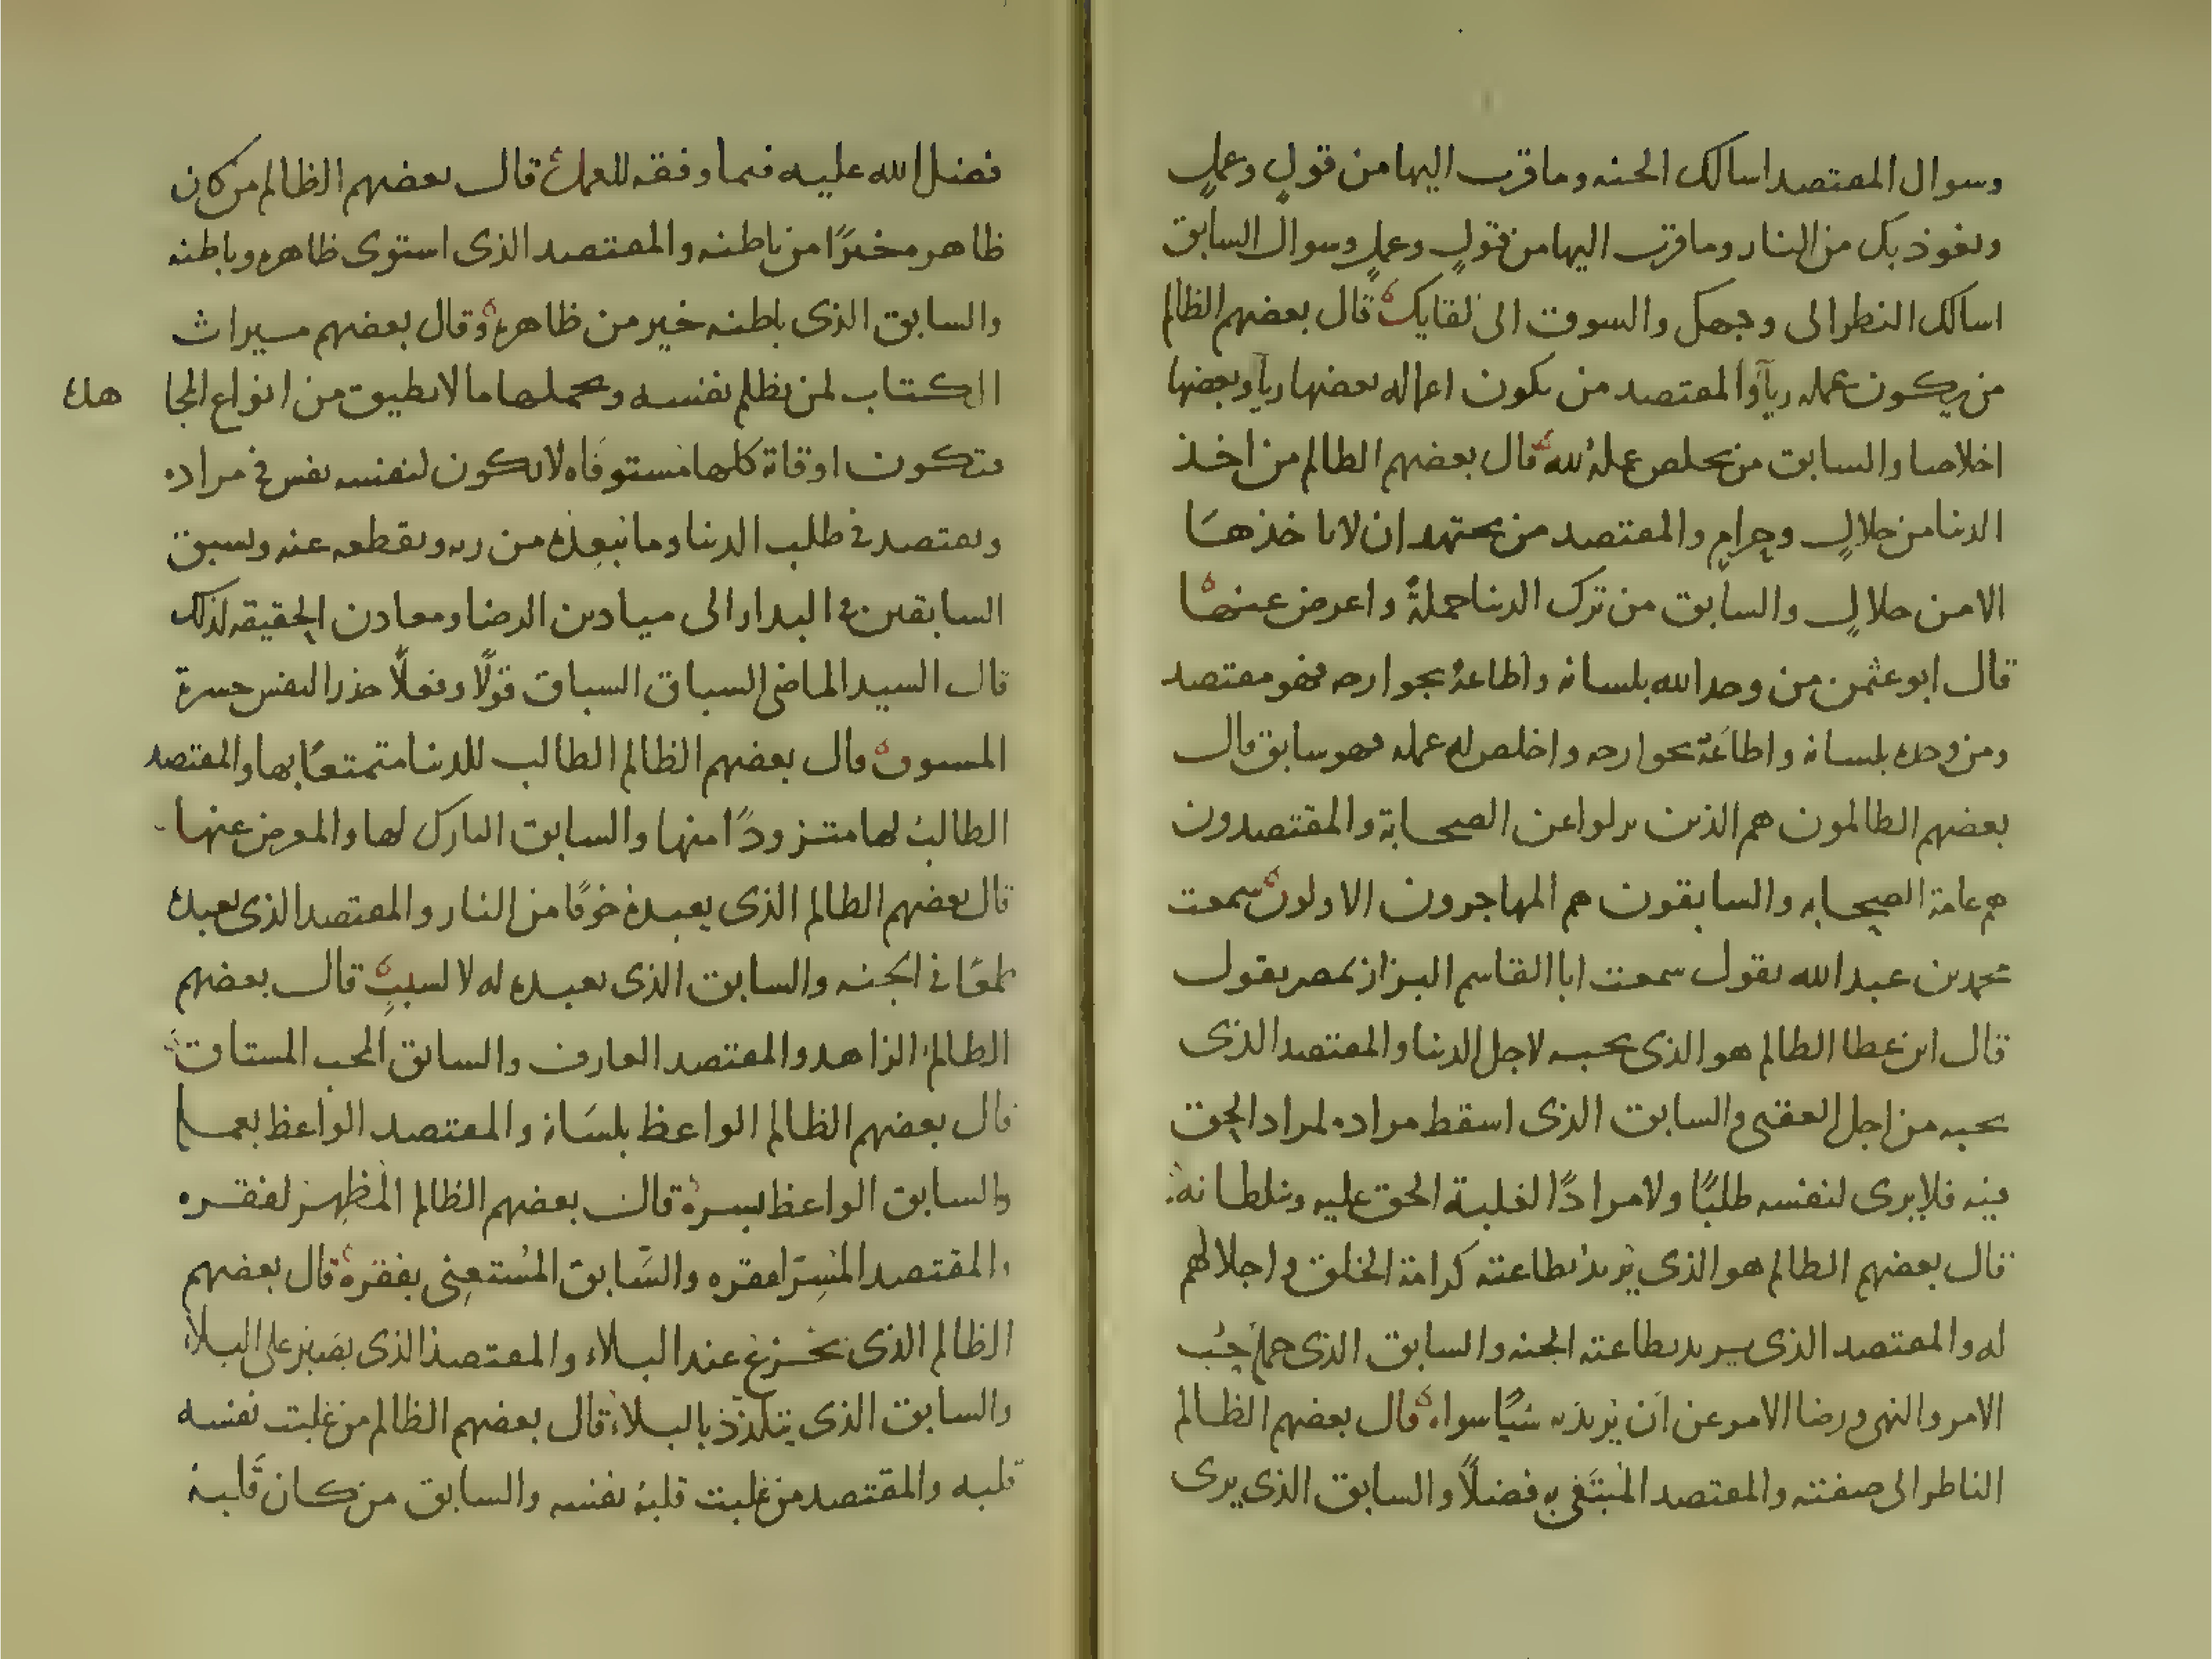 وسوال المقتصد اسالك الجنه وما قرب اليها من قولٍ وعملٍ
ونعوذ بك من النار وما قرب اليها من قولٍ وعملٍ وسوال السابق
اسالك النظر الى وجهك والشوق الى لقايك قال بعضهم الظالم
من يكون عمله رياً والمقتصد من يكون اعماله بعضها رياً وبعضها
اخلاصا والسابق من يخلص عملهُ لله قال بعضهم الظالم من اخذ
الدنيا من حلالٍ وحرامٍ والمقتصد من يجتهد ان لا ياخذها
الا من حلالٍ والسابق من ترك الدنيا جملةً واعرض عنها
قال ابو عثمن من وحد الله بلسانه واطاعهُ بجوارحه فهو مقتصد
ومن وحده بلسانه واطاعهُ بجوارحه واخلص له عمله فهو سابق قال
بعضهم الظالمون هم الذين نزلوا عن الصحابة والمقتصدون
هم عامة الصحابه والسابقون هم المهاجرون الاولون سمعت
محمد بن عبد الله يقول سمعت ابا القاسم البزاز بمصر يقول
قال ابن عطا الظالم هو الذى يحبه لاجل الدنيا والمقتصد الذى
يحبه من اجل العقبى والسابق الذى اسقط مراده لمراد الحق
فيه فلا يرى لنفسه طلبًا ولا مرادًا لغلبة الحق عليه وسلطانه
قال بعضهم الظالم هو الذى يريد بطاعته كرامة الخلق واجلالهم
له والمقتصد الذى يريد بطاعته الجنه والسابق الذى حمله حُب
الامر والنهى ورضا الامر عن ان يُريد به شيًا سواه قال بعضهم الظالم
الناظر الى صفته والمقتصد المُبتَغى به فضلًا والسابق الذى يرى
فضل الله عليه فيما وفقه للعمل قال بعضهم الظالم من كان
ظاهره خيرًا من باطنه والمقتصد الذى استوى ظاهره وباطنه
والسابق الذى باطنه خير من ظاهره وقال بعضهم ميراث
الكتاب لمن يظلم نفسه ويحملها ما لا يطيق من انواع المجا هده
فتكون اوقاته كلها مستوفاه لا يكون لنفسه نفس فى مراده
ويقتصد فى طلب الدنيا وما يبعِده من ربه ويقطعه عنه ويسبق
السابقين فى البدار الى ميادين الرضا ومعادن الحقيقه لذلك
قال السيد الماضى السباق السباق قولًا وفعلًا حذر النفس حسرة
المسبوق قال بعضهم الظالم الطالب للدنيا متمتعًا بها والمقتصد
الطالبُ لها متزودًا منها والسابق التارك لها والمعرض عنها
قال بعضهم الظالم الذى يعبده خوفًا من النار والمقتصد الذى يعبده
طمعًا فى الجنه والسابق الذى يعبده له لا لسببٍ قال بعضهم
الظالم الزاهد والمقتصد العارف والسابق المحب المشتاق
قال بعضهم الظالم الواعظ بلسَانه والمقتصد الواعظ بعمله
والسابق الواعظ بسره قال بعضهم الظالم المُظهِر لفقره
والمقتصد المُسِرّ لفقره والسَّابق المُستغِنى بفقره قال بعضهم
الظالم الذى يجزع عند البلاء والمقتصد الذى يصبر على البلاء
والسابق الذى يتلذذ بالبلاء قال بعضهم الظالم من غلبت نفسه
قلبه والمقتصد من غلبت قلبهُ نفسه والسابق من كان قَلبهُ